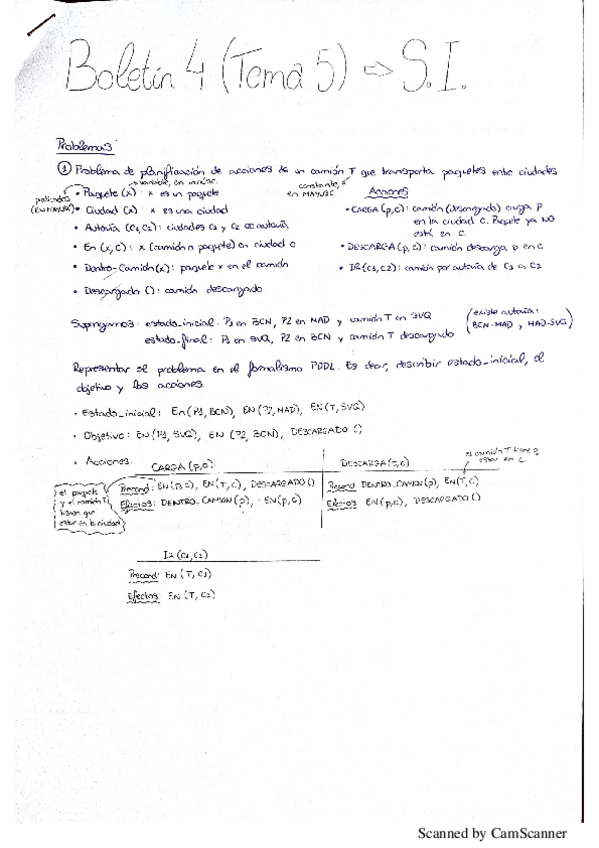 Boletín 4 (Tema 5) => S.I.
Problemas
① Problema de planificación de acciones de un camión T que transporta paquetes entre ciudades
variable, en minúsc.
constantes, en MAYUSC
• Paquete (x) : x es un paquete
• Ciudad (x) : x es una ciudad
• Autovía (C1,C2) : ciudades C1 y C2 autovía
• En (x,C) : x (camión o paquete) en ciudad C
• Dentro-Camión(x) : paquete x en el camión
• Descargado () : camión descargado
Acciones
• CARGA (p,c) : camión (descargado) carga p
en la ciudad C. Paquete ya NO
está en C.
• DESCARGA (p,c) : camión descarga p en C
• IR (C1,C2) : camión por autovía de C1 a C2
Supongamos: estado_inicial: P1 en BCN, P2 en MAD y camión T en SVQ
estado_final: P1 en SVQ, P2 en BCN y camión T descargado
(existe autovía:
BCN-MAD y MAD-SVQ)
Representar el problema en el formalismo PDDL. Es decir, describir estado-inicial, el
objetivo y las acciones.
• Estado_inicial: En(P1,BCN), EN(P2,MAD), EN(T,SVQ)
• Objetivo: EN(P1,SVQ), EN (P2,BCN), DESCARGADO ()
• Acciones:
CARGA (p,c)
Precond: EN(p,c), EN(T,C), DESCARGADO ()
Efectos: DENTRO_CAMION (p), EN(p,c)
el paquete
y el camión T
tienen que
estar en la ciudad
DESCARGA (p,c)
el camión T tiene q
estar en C.
Precond: DENTRO_CAMION (p), EN(T,C)
Efectos: EN(p,c), DESCARGADO ()
IR (C1,C2)
Precond: EN (T,C1)
Efectos: EN (T,C2)
Scanned by CamScanner